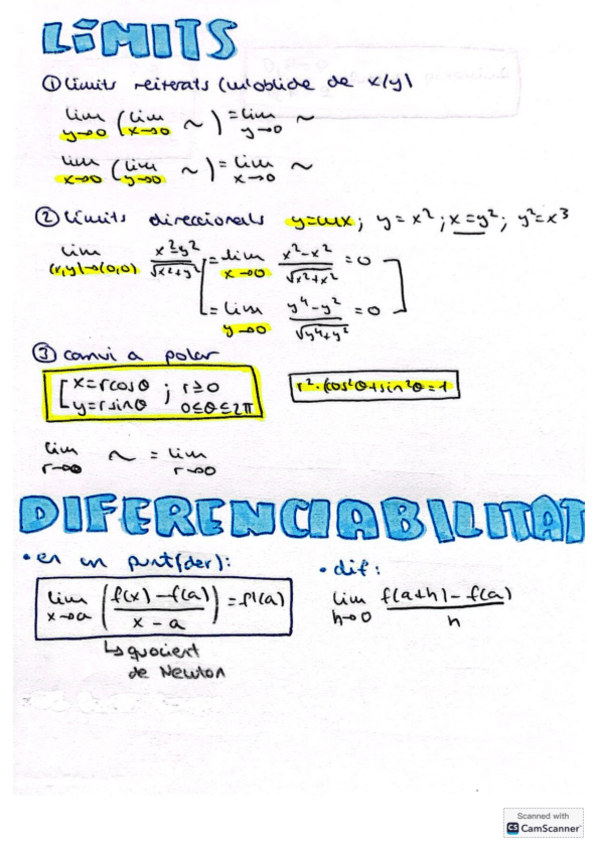 LÍMITS
① Límits reiterats (m'oblide de x/y)
lim y→0 (lim x→0 ~) = lim y→0 ~
lim x→0 (lim y→0 ~) = lim x→0 ~
② Límits direccionals y=mx; y=x²; x=y²; y²=x³
lim (x,y)→(0,0) x²-y²/√x²+y² = lim x→0 x²-x²/√x²+x² = 0
= lim y→0 y⁴-y²/√y⁴+y² = 0
③ canvi a polar
x=rcosθ ; r≥0
y=rsinθ 0≤θ≤2π
r²·cos²θ+sin²θ=1
lim r→0 ~ = lim r→0
DIFERENCIABILITAT
• en un punt(der):
lim x→a (f(x)-f(a)/x-a) = f'(a)
↳ quocient
de Newton
• dif:
lim h→0 f(a+h)-f(a)/h
Scanned with
CS CamScanner